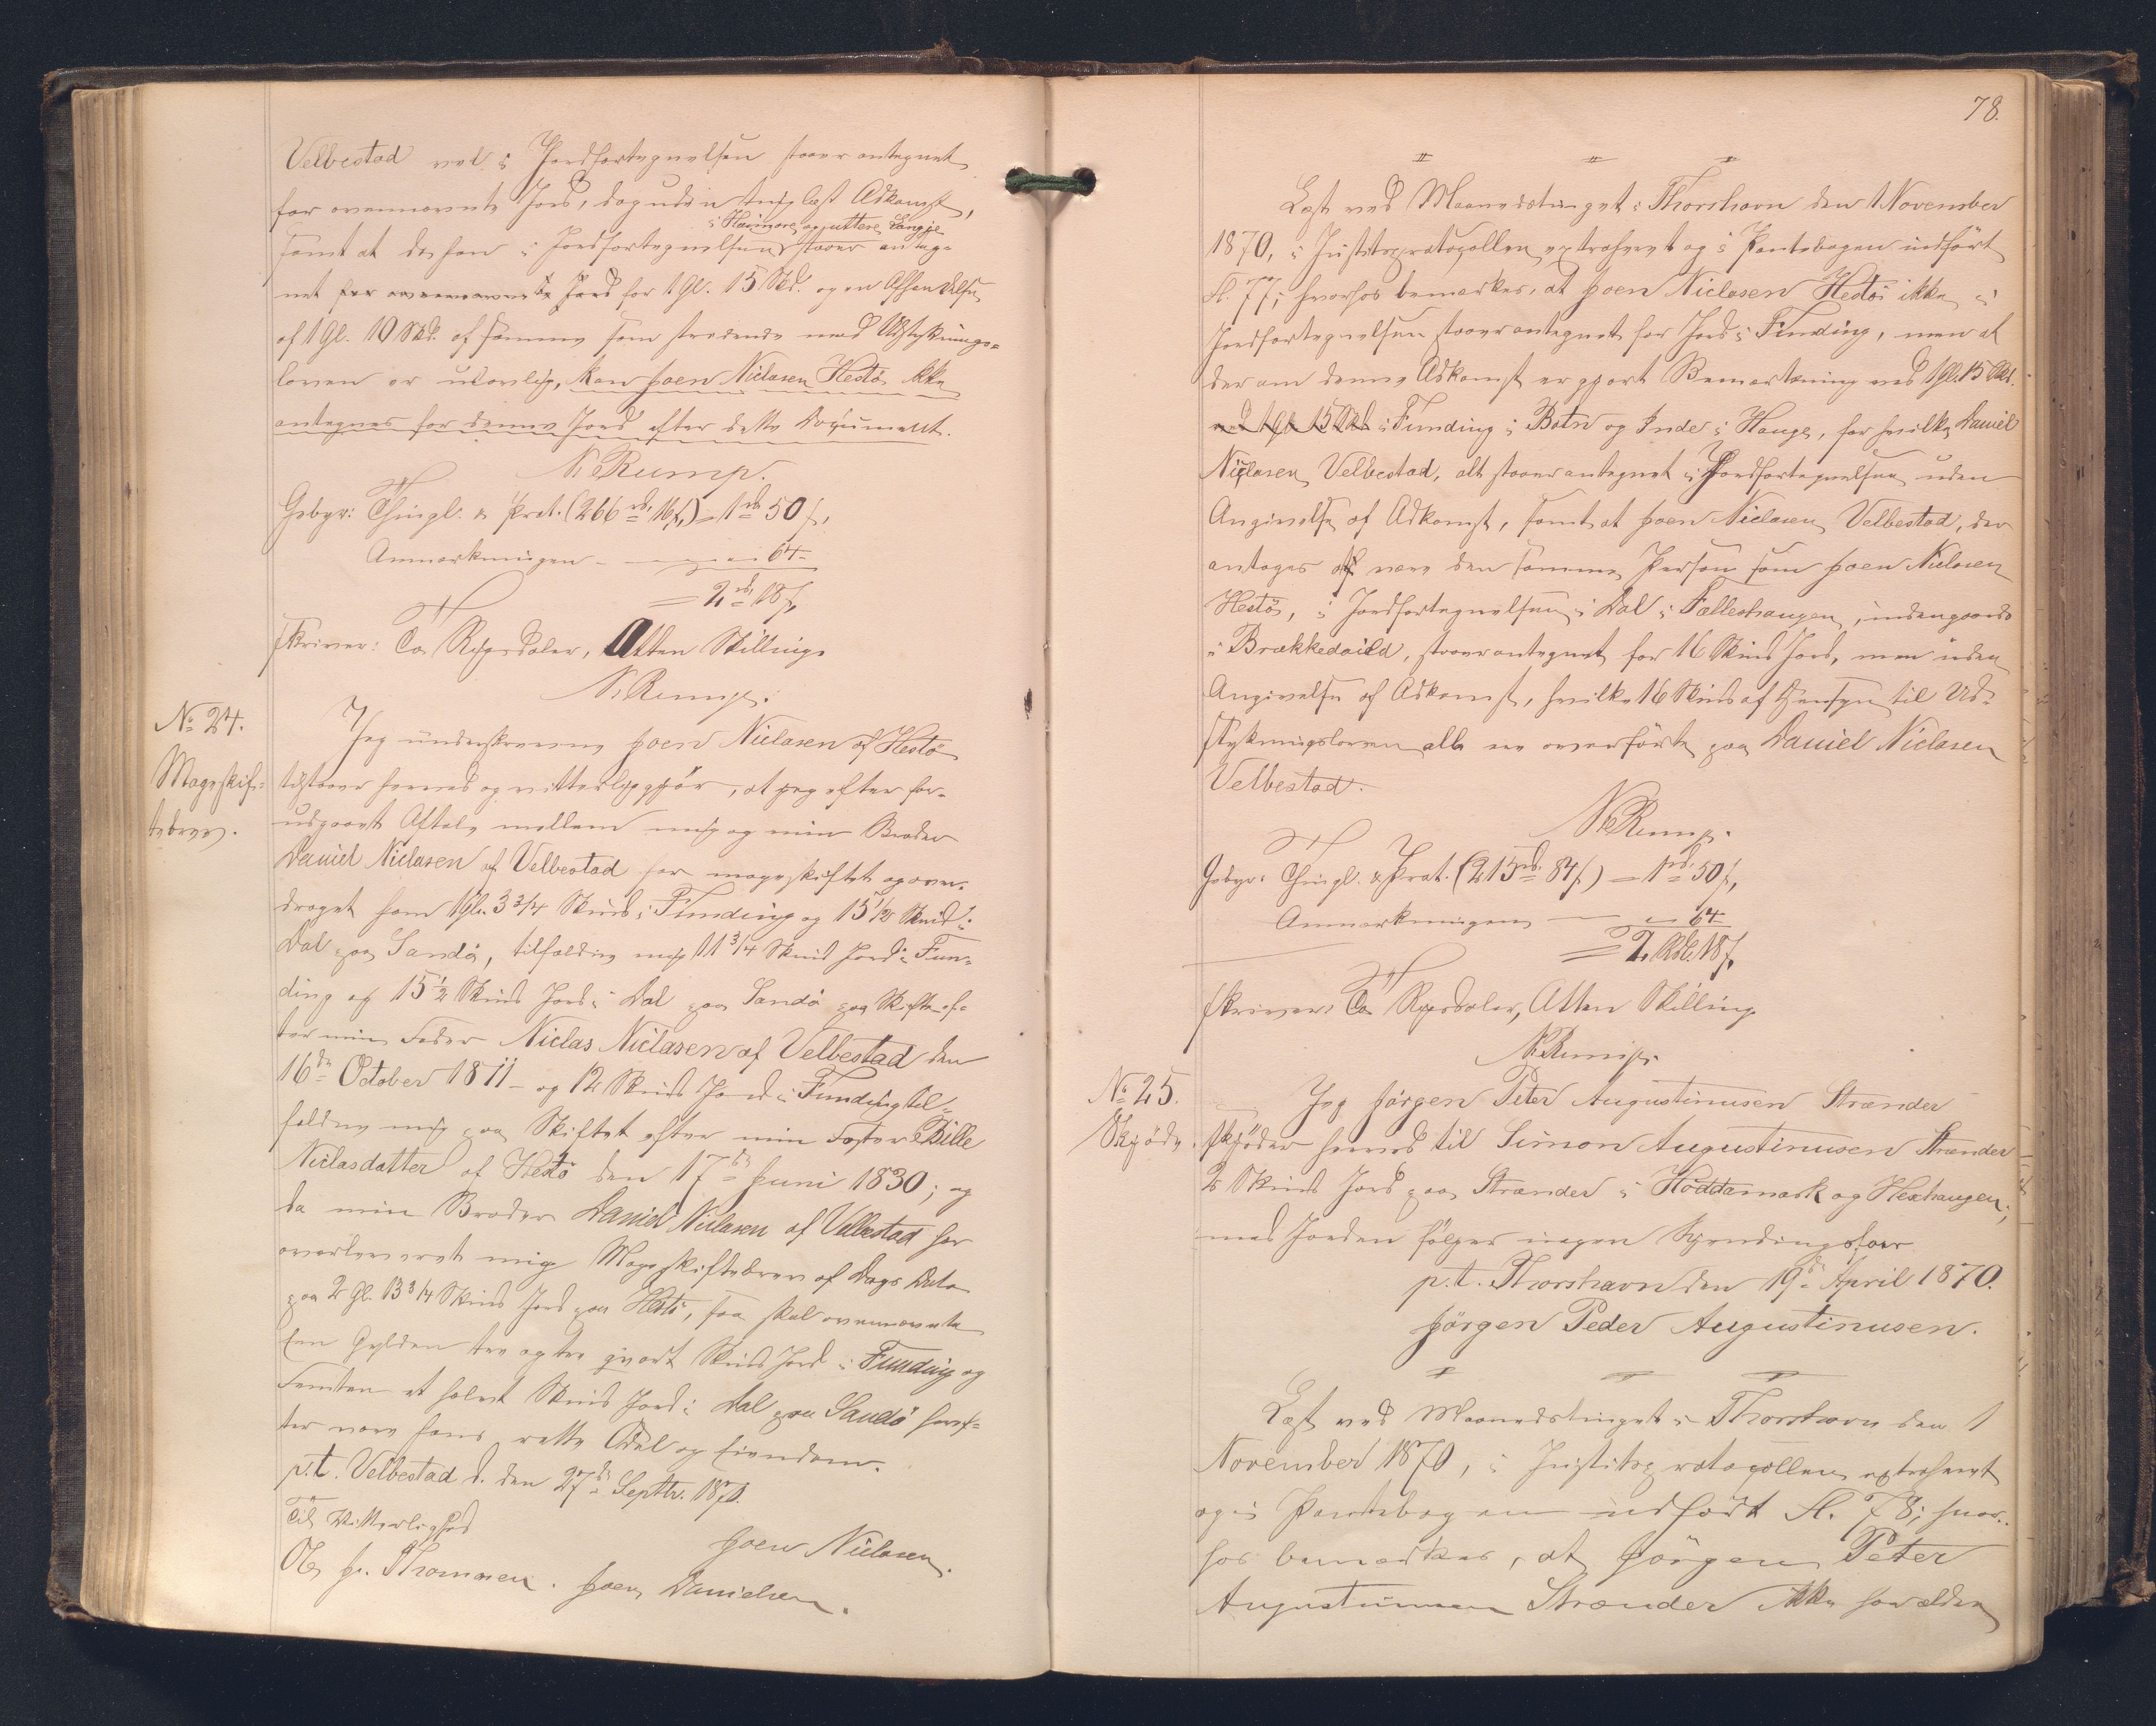 Velbestad vel i Jordfortegnelsen staaer antegnet
for ovennævnte Jord, dog uden tinglæst Adkomst,
i Haimore og uttere Langje
samt at da han i Jordfortegnelsen staaer anteg-
net for ovennævnte Jord for 1 Gl. 15 Skd. og en Afhændelse
af 1 Gl. 10 Skd. af samme som stridende mod Udstyknings-
loven er ulovlig, kan Joen Niclasen Hestö ikke
antegnes for denne Jord efter dette Document.
N. Rump.
Gebyr: Thingl. & Prot. (266 rd. 16 s.) = 1 rd 50 s.
Anmærkningen - - - 64 -
= 2 rd. 18 s.
skriver: To Rigsdaler, Atten Skilling.
N. Rump.
No 24.
Mageskif-
tebrev.
Jeg underskrevne Joen Niclasen af Hestö
tilstaaer herved og vitterliggjör, at jeg efter for-
udgaaet Aftale mellem mig og min Broder
Daniel Niclasen af Velbestad har mageskiftet og over-
draget ham 1 Gl. 3 3/4 Skind i Funding og 15 1/2 Skind i
Dal paa Sandö, tilfalden mig 11 3/4 Skind Jord i Fun-
ding og 15 1/2 Skind Jord i Dal paa Sandö paa Skifte ef-
ter min Fader Niclas Niclasen af Velbestad den
16de October 1811 - og 12 Skind Jord i Funding til-
falden mig paa Skiftet efter min Faster Bille
Niclasdatter af Hestö den 17de Juni 1830; og
da min Broder Daniel Niclasen af Velbestad har
overleveret mig Mageskiftebrev af Dags Dato
paa 2 Gl. 13 3/4 Skind Jord paa Hestö, saa skal ovennævnte
Een Gylden tre og tre qvart Skind Jord i Funding og
Femten et halvt Skind Jord i Dal paa Sandö heref-
ter være hans rette Odel og Eiendom.
p.t. Velbestad d. den 27de Septbr. 1870.
Til Vitterlighed
Joen Niclasen.
Ole Jr. Thomasen. Joen Danielsen.
78.
Læst ved Maanedstinget i Thorshavn den 1 November
1870, i Justitsprotocollen extraheret og i Pantebogen indfört
fl. 77; hvorhos bemærkes, at Joen Niclasen Hestö ikke i
Jordfortegnelsen staaer antegnet for Jord i Funding, men at
der om denne Adkomst er gjort Bemærkning ved 1 Gl. 15 Skd.
ved 1 Gl. 15 Skd. i Funding i Botn og Inde i Hauge, for hvilke Daniel
Niclasen Velbestad, alt staaer antegnet i Jordfortegnelsen uden
Angivelse af Adkomst, samt at Joen Niclasen Velbestad, der
antages at være den samme Person som Joen Niclasen
Hestö, i Jordfortegnelsen i Dal i Fælleshaugen, indengaards
i Brækkedaild, staaer antegnet for 16 Skind Jord, men uden
Angivelse af Adkomst, hvilke 16 Skind af Hensyn til Ud-
stykningsloven alle ere overförte paa Daniel Niclasen
Velbestad.
N. Rump.
Gebyr: Thingl. & Prot. (215 rd. 84 s.) = 1 rd. 50 s.
Anmærkningen - - 64
= 2 Rdl. 18 s.
skriver: To Rigsdaler, Atten Skilling
N. Rump.
No 25.
Skjöde.
Jeg Jörgen Peter Augustinusen Strænder
skjöder herved til Simon Augustinusen Strænder
2 Skind Jord paa Strænder i Höddamark og Hexhaugen;
med Jorden fölger ingen Kyrndingsfaar
p.t. Thorshavn den 19de April 1870.
Jörgen Peder Augustinusen.
Læst ved Maanedstinget i Thorshavn den 1
November 1870, i Justitsprotocollen extraheret
og i Pantebogen indfört fl. 78; hvor-
hos bemærkes, at Jörgen Peter
Augustinusen Strænder ikke har ældre